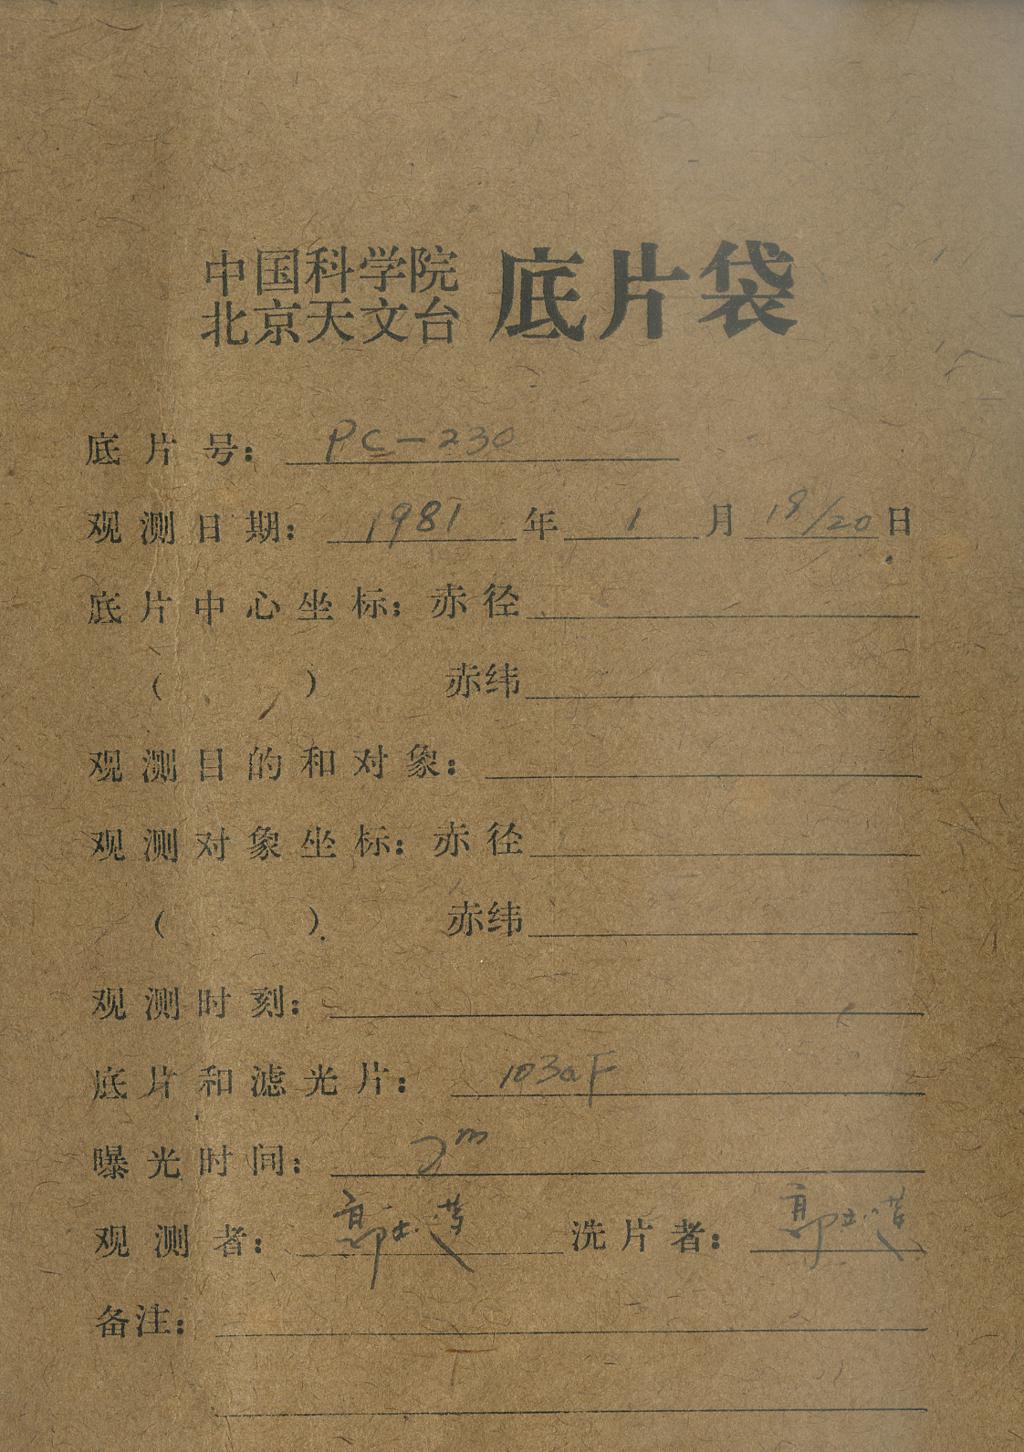 中国科学院
北京天文台
底片袋
底片号: PC-230
观测日期: 1981年1月18/20日
底片中心坐标: 赤径
( ) 赤纬
观测目的和对象:
观测对象坐标: 赤径
( ) 赤纬
观测时刻:
底片和滤光片: 103aF
曝光时间: 2m
观测者: 郭 洗片者: 郭
备注: